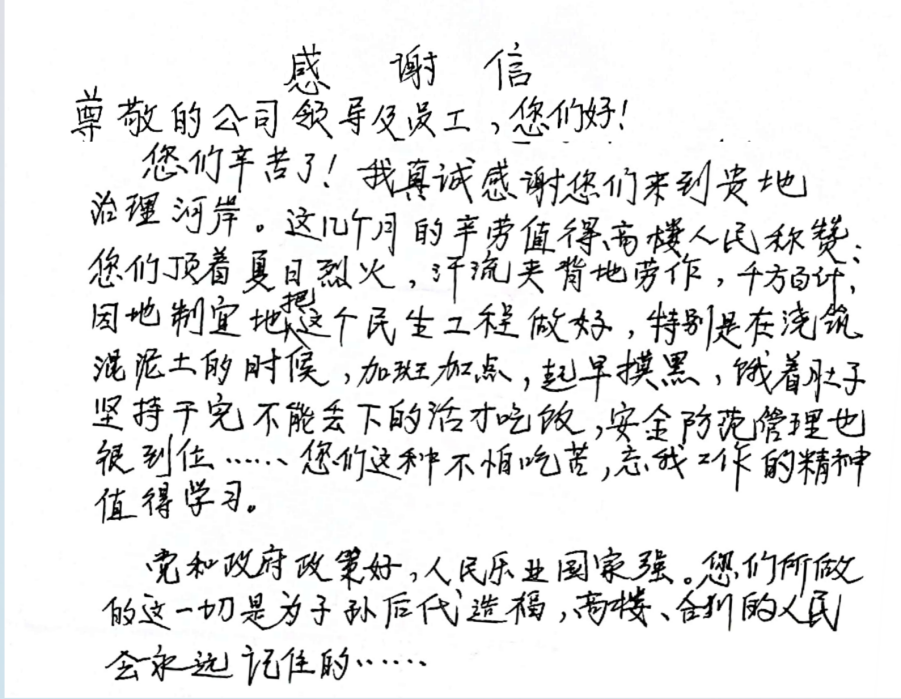 感谢信
尊敬的公司领导及员工，您们好！
您们辛苦了！我真诚感谢您们来到贵地
治理河岸。这几个月的辛劳值得高楼人民称赞：
您们顶着夏日烈火，汗流夹背地劳作，千方百计；
因地制宜地把这个民生工程做好，特别是在浇筑
混泥土的时候，加班加点，起早摸黑，饿着肚子
坚持干完不能丢下的活才吃饭，安全防范管理也
很到位……您们这种不怕吃苦，忘我工作的精神
值得学习。
党和政府政策好，人民乐业国家强。您们所做
的这一切是为子孙后代造福，高楼、合川的人民
会永远记住的……